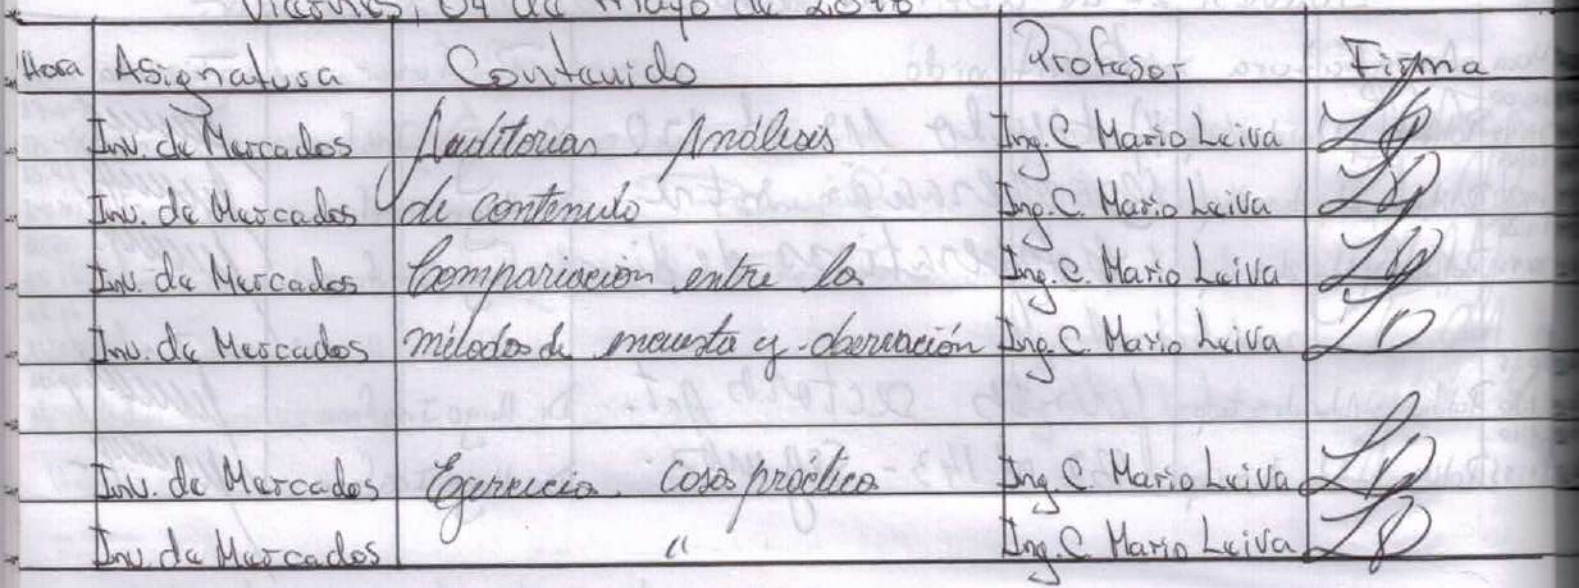 Viernes, 04 de Mayo de 2018
Hora Asignatura Contenido Profesor Firma
Inv. de Mercados Auditorias Análisis Ing. C. Mario Leiva
Inv. de Mercados de contenido Ing. C. Mario Leiva
Inv. de Mercados Comparación entre los Ing. C. Mario Leiva
Inv. de Mercados métodos de encuesta y observación Ing. C. Mario Leiva
Inv. de Mercados Ejercicio Caso práctico Ing. C. Mario Leiva
Inv. de Mercados " Ing. C. Mario Leiva